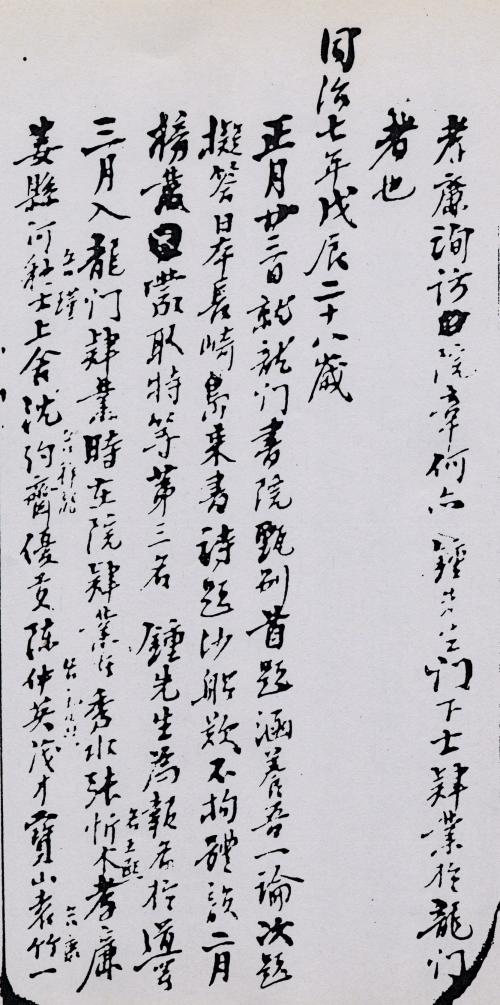 孝廉詢訪田院章何六鍾先生門下士肄業於龍門
者也
同治七年戊辰二十八歲
正月廿三日就龍門書院甄別首題涵養吾一論次題
擬答日本長崎島來書詩題沙船歎不拘體韻二月
榜發蒙取特等第三名鍾先生為報名於道署
三月入龍門肄業時在院肄業秀水張忻木孝廉
婁縣河士上舍沈約齋優貢陳仲英茂才寶山袁竹一